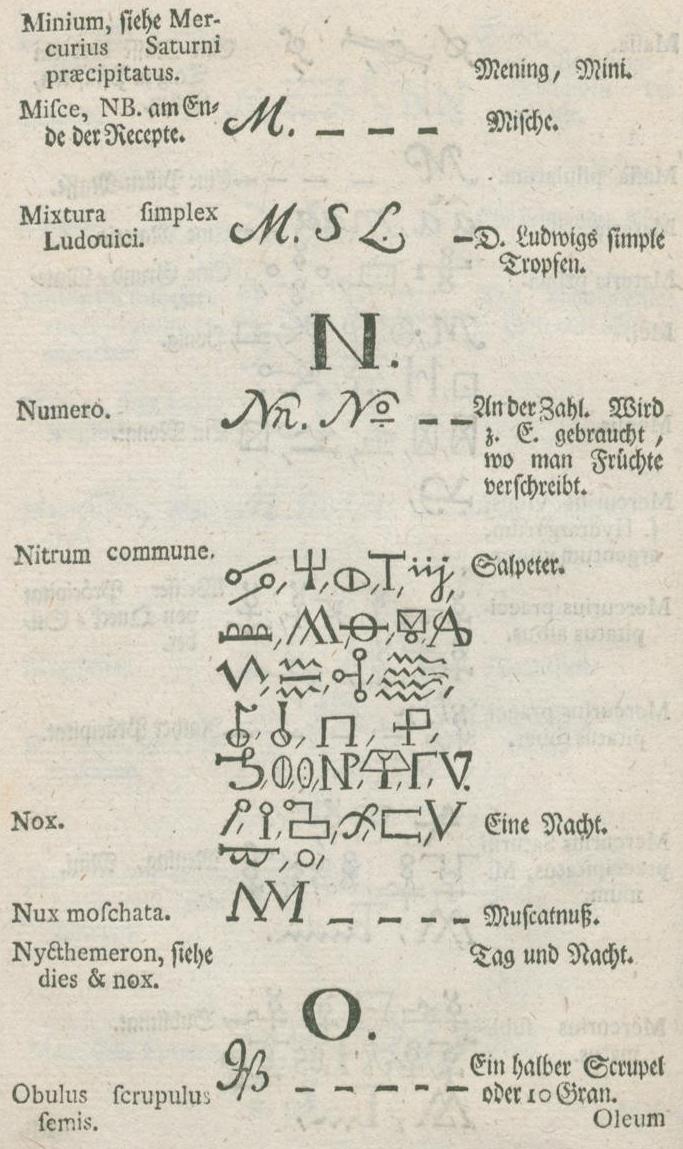 Minium, ſiehe Mer-
curius Saturni
præcipitatus. Mening, Mini.
Miſce, NB. am En-
de der Recepte. M. — — — Miſche.
Mixtura ſimplex
Ludouici. M. S L. — D. Ludwigs ſimple
Tropfen.
N.
Numero. Nn. No — — An der Zahl. Wird
z. E. gebraucht,
wo man Früchte
verſchreibt.
Nitrum commune. Salpeter.
Nox. Eine Nacht.
Nux moſchata. NM — — — — Muſcatnuß.
Nycthemeron, ſiehe Tag und Nacht.
dies & nox.
O.
Obulus ſcrupulus — — — — — Ein halber Scrupel
ſemis. oder 10 Gran.
Oleum